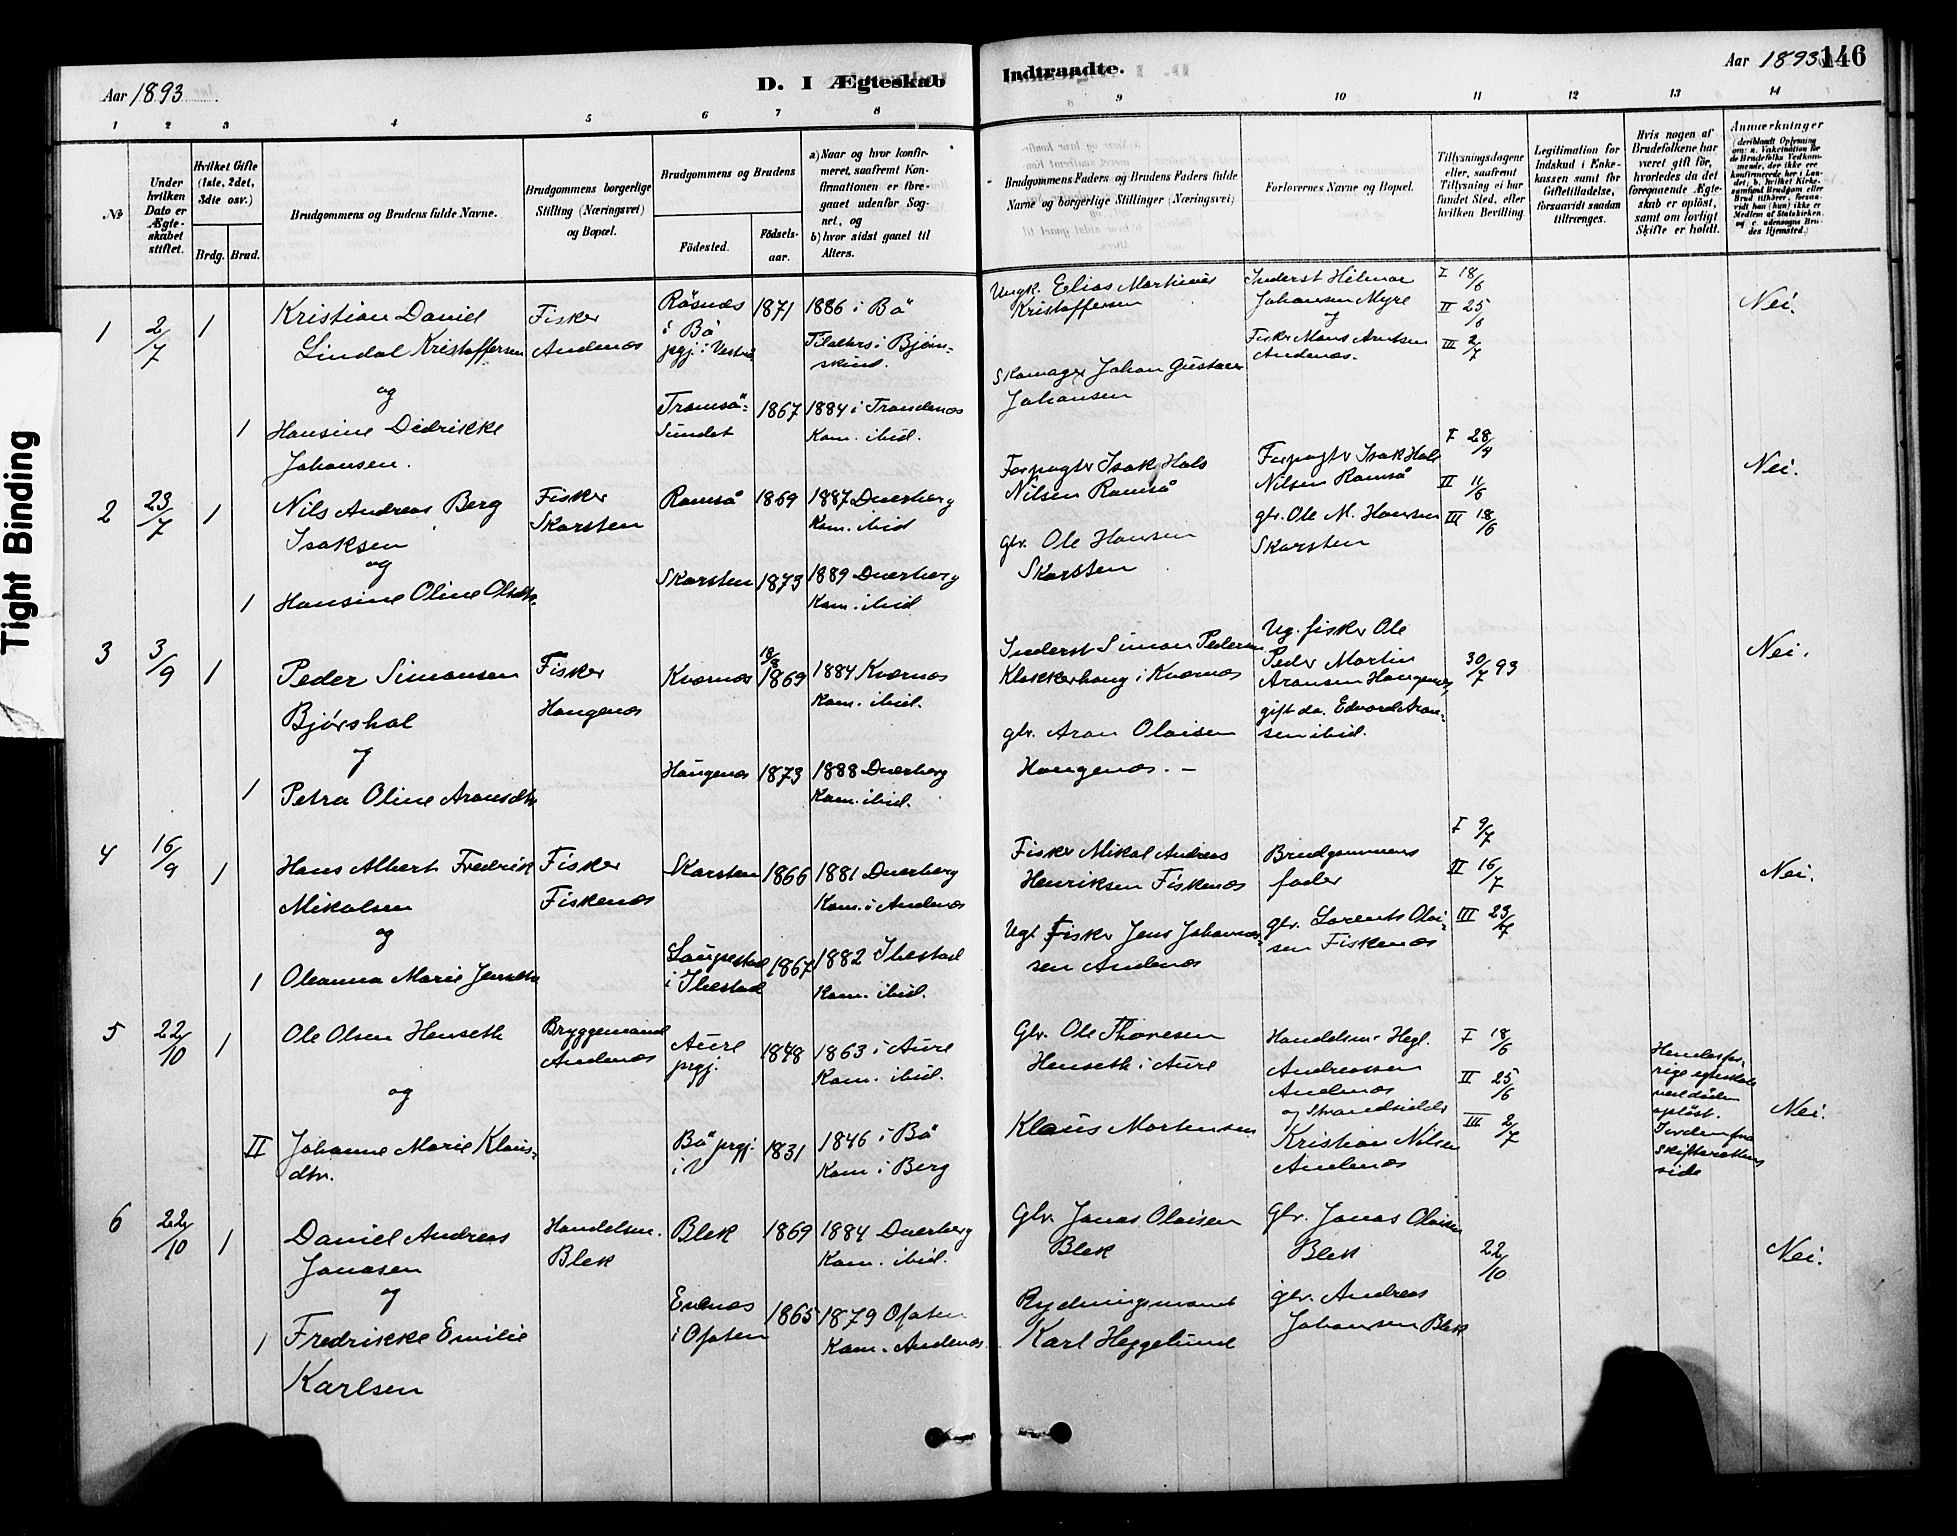 Tight Binding
Aar 1893
D. I Ægteskab
1 2 3 4 5 6 7 8
№
Under hvilken Dato er Ægteskabet stiftet.
Hvilket Gifte (1ste, 2det, 3die osv.)
Brdg. Brud.
Brudgommens og Brudens fulde Navne.
Brudgommens borgerlige Stilling (Næringsvei) og Bopæl.
Brudgommens og Brudens
Fødested.
Fødselsaar.
a) Naar og hvor konfirmeret, saafremt Konfirmationen er foregaaet udenfor Sognet, og
b) hvor sidst gaaet til Alters.
1 2/7 1
Kristian Daniel
Lindal Kristoffersen
og
1 Hansine Didrikke
Johansen.
Fisker
Andenæs
Røsnæs
i Bö
prgj. i Vester
1871
1886 i Bö
Tilalters i Bjørn-
skind.
Tromsö-
Sundet
1867
1884 i Trondenæs
Kom. ibid.
2 23/7 1
Nils Andreas Berg
Isaksen
og
1 Hansine Oline Olsdtr.
Fisker
Skarsten
Ramså
1869
1887 Dverberg
Kom. ibid
Skarsten
1873
1889 Dverberg
Kom. ibid
3 3/9 1
Peder Simonsen
Bjørshol
og
1 Petra Oline Aronsdtr
Fisker
Haugenæs
Kværnæs
18/8 1869
1884 Kværnæs
Kom. ibid.
Haugenæs
1873
1888 Dverberg
Kom. ibid.
4 16/9 1
Hans Albert Fredrik
Mikalsen
og
1 Oleanna Marie Jensdtr
Fisker
Fiskenæs
Skarsten
1866
1881 Dverberg
Kom. i Andenæs
Laupestad
i Ibestad
1867
1882 Ibestad
Kom. ibid.
5 22/10 1
Ole Olsen Henseth
og
II Johanne Marie Klaus-
dtr.
Bryggemand
Andenæs
Aure
prgj.
1848
1863 i Aure
Kom. ibid.
Bö prgj.
i V
1831
1846 i Bö
Kom i Berg
6 22/10 1
Daniel Andreas
Jonasen
og
1 Fredrikke Emilie
Karlsen
Handelsm.
Blek
Blek
1869
1884 Dverberg
Kom. ibid.
Evenæs
i Ofoten
1865
1879 Ofoten
Kom. Andenæs
Indtraadte.
Aar 1893
146
9 10 11 12 13 14
Brudgommens Faders og Brudens Faders fulde Navne og borgerlige Stillinger (Næringsvei)
Forlovernes Navne og Bopæl.
Tillysningsdagene eller, saafremt Tillysning ei har fundet Sted, efter hvilken Bevilling.
Legitimation for Indskud i Enkekassen samt for Giftetilladelse, forsaavidt saadan tiltrænges.
Hvis nogen af Brudefolkene har været gift før, hvorledes da det foregaaende Ægteskab er opløst, samt om lovligt Skifte er holdt.
Anmærkninger
(deriblandt Oplysning om: a. Vakcination for de Brudefolks Vedkommende, der ikke ere konfirmerede her i Landet; b. hvilket Kirkesamfund Brudgom eller Brud tilhører, forsaavidt han (hun) ikke er Medlem af Statskirken, og c. udensogns Brudes Hjemsted.)
Ungk. Elias Martinus
Kristoffersen
Skomager Johan Gustav
Johansen
Inderst Hilmar
Johansen Myre
og
Fisker Mons Arntsen
Andenæs.
I 18/6
II 25/6
III 2/7
Nei.
Forpagter Isak Hals
Nilsen Ramså
gbr. Ole Hansen
Skarsten
Forpagter Isak Hals
Nilsen Ramså
gbr. Ole M. Hansen
Skarsten
I 28/4
II 11/6
III 18/6
Nei.
Inderst Simon Pedersen
Klakkerhaug i Kværnæs
gbr. Aron Olaisen
Haugenæs. -
Ug. fisker Ole
Peder Martin
Aronsen Haugenæs,
gift do. Edvard Aron-
sen ibid.
30/7 93
Nei.
Fisker Mikal Andreas
Henriksen Fiskenæs
Ugt Fisker Jens Johannes-
sen Andenæs
Brudgommens
fader
gbr. Lorents Olai-
sen Fiskenæs
I 9/7
II 16/7
III 23/7
Nei.
Gbr. Ole Thoresen
Henseth i Aure
Klaus Mortensen
Handelsm. Hegl.
Andreassen
Andenæs
og Strandsidder
Kristian Nilsen
Andenæs
I 18/6
II 25/6
III 2/7
Hendes for-
rige egteskab
ved døden
opløst.
skifterettens
side
Nei.
Gbr. Jonas Olaisen
Blek
Rydningsmand
Karl Heggelund
Gbr. Jonas Olaisen
Blek
gbr. Andreas
Johansen Blek
22/10
Nei.